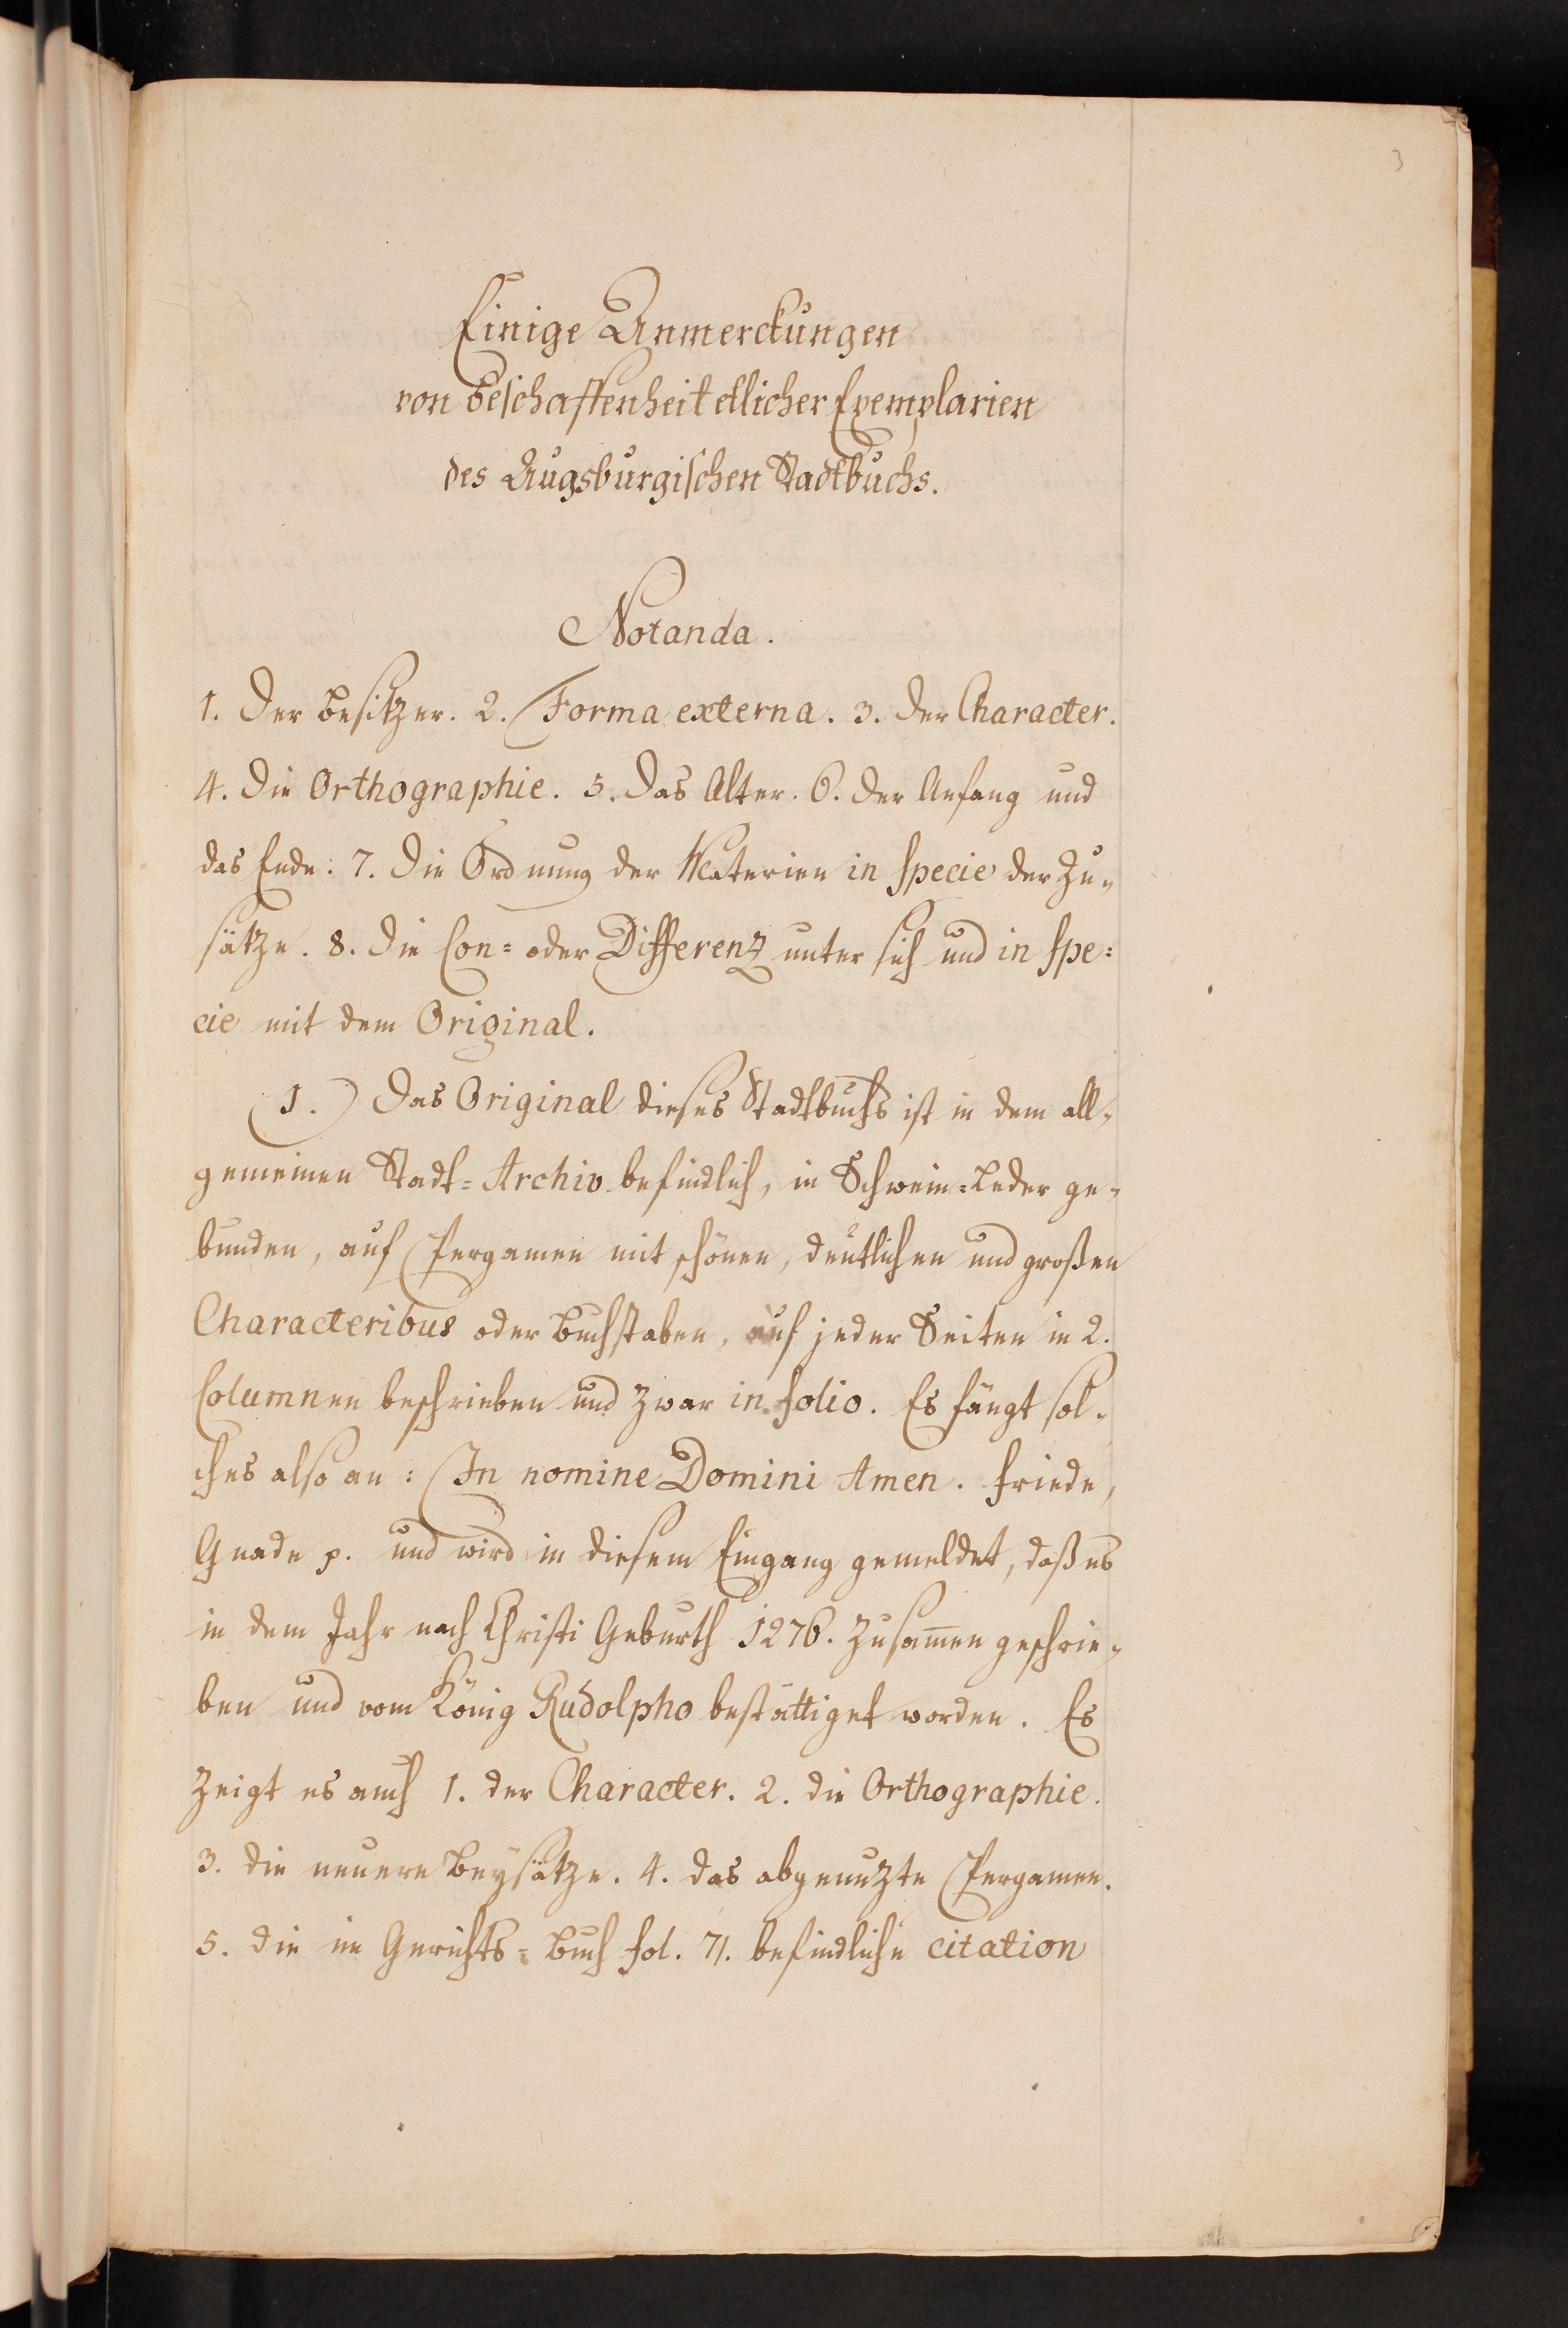 3
Einige Anmerckungen
von Beschaffenheit etlicher Exemplarien
des Augsburgischen Stadtbuchs.
Notanda.
1. Der Besitzer. 2. Forma externa. 3. Der Character.
4. Die Orthographie. 5. Das Alter. 6. Der Anfang und
das Ende. 7. Die Ordnung der Materien in specie der Zu-
sätze. 8. Die Con= oder Differenz unter sich und in spe=
cie mit dem Original.
(1.) Das Original dieses Stadtbuchs ist in dem all-
gemeinen Stadt=Archiv befindlich, in Schwein=Leder ge-
bunden, auf Pergamen mit schönen, deutlichen und großen
Characteribus oder Buchstaben, auf jeder Seiten in 2.
Columnen beschrieben und zwar in folio. Es fängt sol-
ches also an: In nomine Domini Amen. Friede,
Gnade p. und wird in diesem Eingang gemeldet, daß es
in dem Jahr nach Christi Geburth 1276. zusam̄en geschrie-
ben und vom König Rudolpho bestättiget worden. Es
zeigt es auch 1. der Character. 2. die Orthographie.
3. die neuere Beysätze. 4. das abgenuzte Pergamen.
5. die im Gerichts=Buch fol. 71. befindliche citation